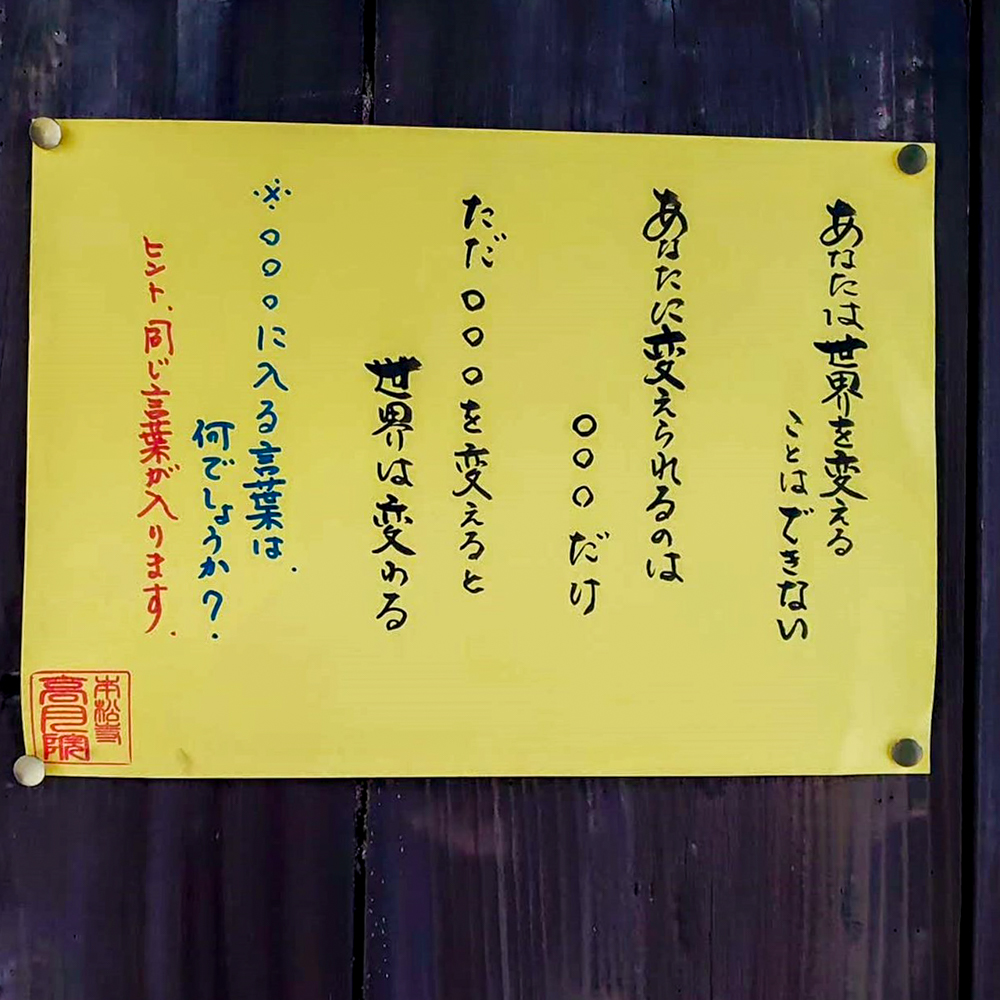 あなたは世界を変える
ことはできない
あなたに変えられるのは
○○○だけ
ただ○○○を変えると
世界は変わる
※○○○に入る言葉は、
何でしょうか?
ヒント、同じ言葉が入ります。
本松寺
高月院